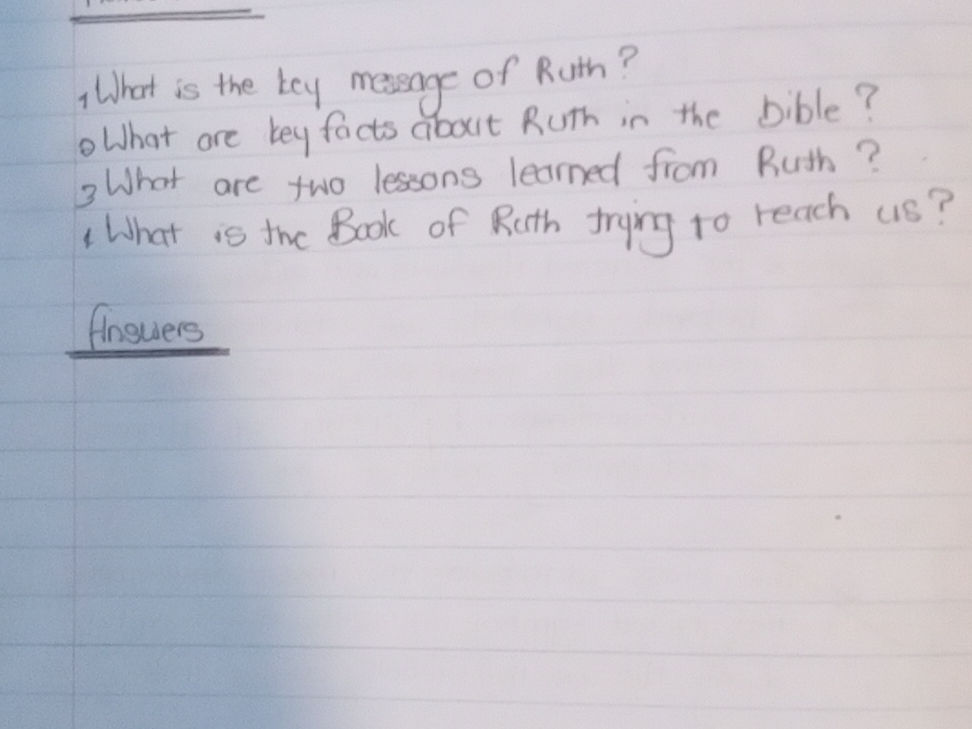 1 What is the key message of Ruth?
2 What are key facts about Ruth in the bible?
3 What are two lessons learned from Ruth?
4 What is the Book of Ruth trying to teach us?
Answers